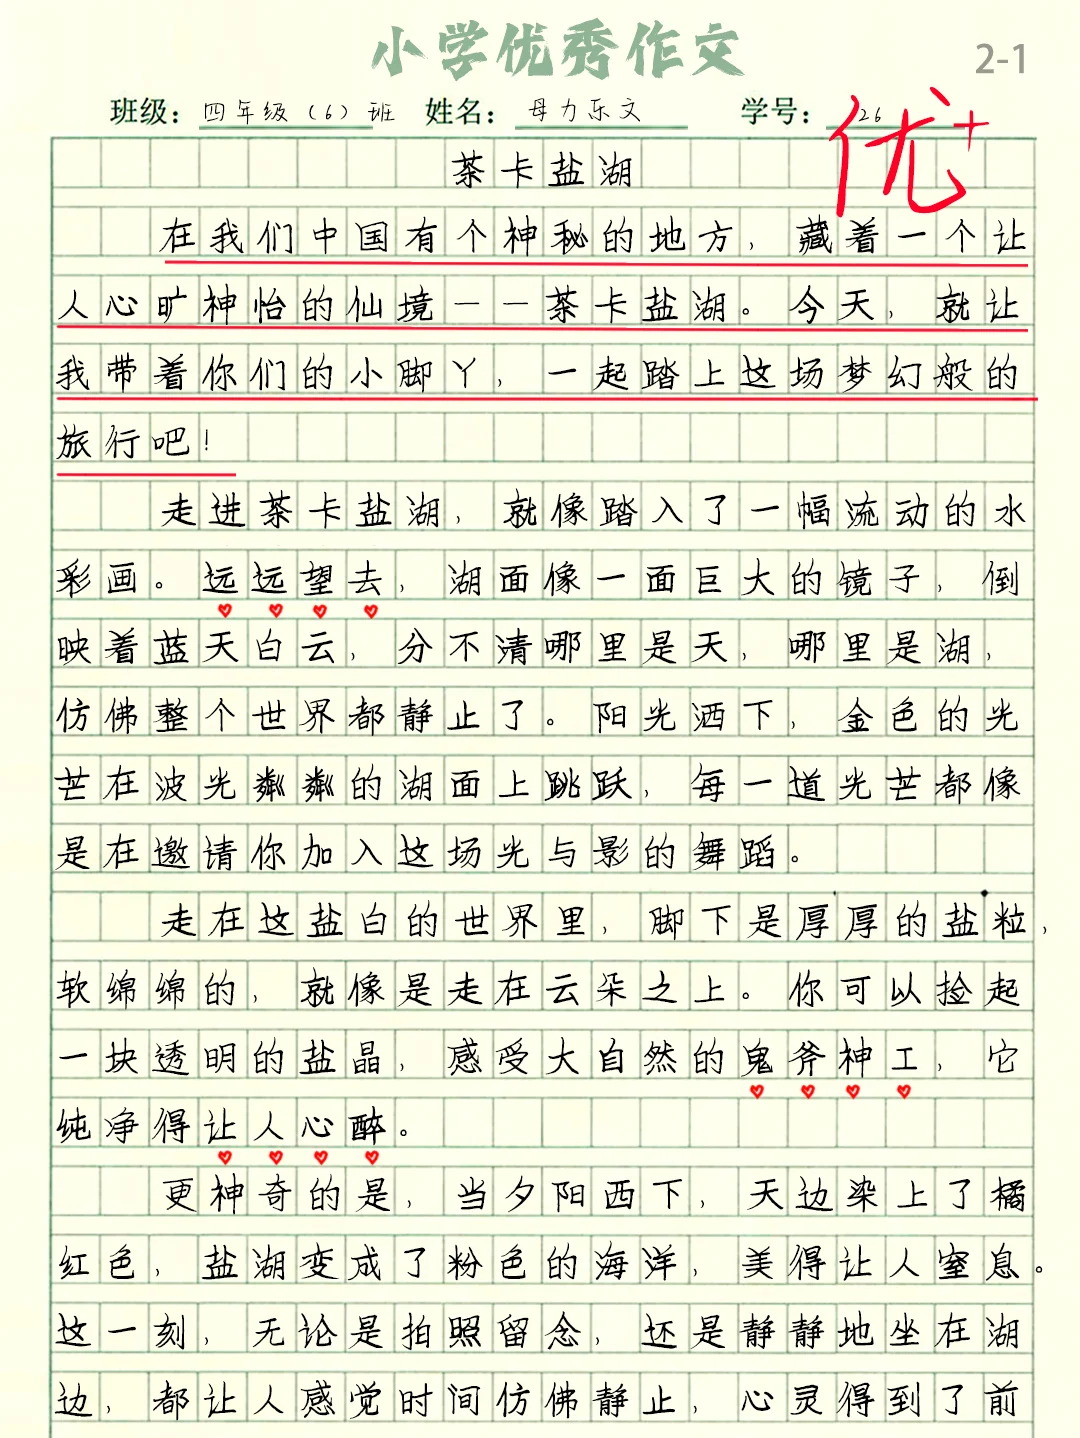 小学优秀作文
2-1
班级：四年级（6）班 姓名：母力乐文 学号：26
优+
茶卡盐湖
在我们中国有个神秘的地方，藏着一个让
人心旷神怡的仙境——茶卡盐湖。今天，就让
我带着你们的小脚丫，一起踏上这场梦幻般的
旅行吧！
走进茶卡盐湖，就像踏入了一幅流动的水
彩画。远远望去，湖面像一面巨大的镜子，倒
映着蓝天白云，分不清哪里是天，哪里是湖，
仿佛整个世界都静止了。阳光洒下，金色的光
芒在波光粼粼的湖面上跳跃，每一道光芒都像
是在邀请你加入这场光与影的舞蹈。
走在这盐白的世界里，脚下是厚厚的盐粒，
软绵绵的，就像是走在云朵之上。你可以捡起
一块透明的盐晶，感受大自然的鬼斧神工，它
纯净得让人心醉。
更神奇的是，当夕阳西下，天边染上了橘
红色，盐湖变成了粉色的海洋，美得让人窒息。
这一刻，无论是拍照留念，还是静静地坐在湖
边，都让人感觉时间仿佛静止，心灵得到了前